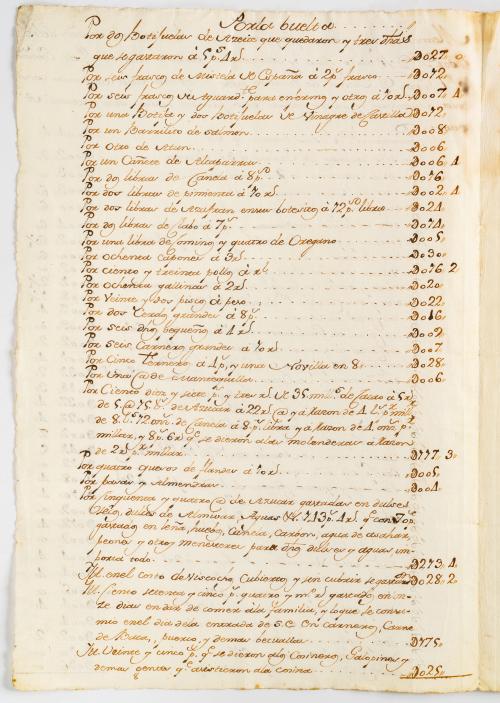 Por la buelta
Por dos Botijuelas de Azeite que quedaron y tres
que se gastaron à 5 p.s 4 r.s D027 0
Por seis frascos de Mistela de España à 2 p.s frasco D012
Por seis frascos de Aguard.te para enfermo y otro, à 10 r.s D007 4
Por una Botija y dos Botijuelas de Vinagre de Castilla D012
Por un Barrilito de salmon D008
Por otro de Atun D006
Por un Cuñete de Alcaparras D006 4
Por dos libras de Canela à 8 p.s D016
Por dos libras de pimienta à 10 r.s D002 4
Por dos libras de Azafran en un botesito à 12 p.s libra D024
Por dos libras de Clabo à 7 p.s D014
Por una libra de Comino y quatro de Oregano D005
Por ochenta Capones à 3 r.s D030
Por ciento y treinta pollos à r.l D016 2
Por ochenta gallinas à 2 r.s D020
Por Veinte y dos piscos à peso D022
Por dos Cerdos grandes à 8 p.s D016
Por seis dhos pequeños à 4 r.s D002
Por seis Carneros grandes à 10 r.s D007
Por Cinco Terneros à 4 p.s y una Novilla en 8 D028
Por Una @ de D006
Por Ciento diez y siete p.s y tres r.s de 35 mill.s de Cacao à 5 r.s
de 5 @ 15 l.s de Azucar à 22 r.s @ y à Razon de 4 l.s p.r mill.r
de 8 l.s 12 on.s de Canela à 8 p.s libra y à Razon de 4 onz.s p.r
millar, y 8 p.s 6 r.s q.e se dieron à las molenderas à Razon
de 2 r.s p.r millar D117 3
Por quatro quesos de flandes à 10 r.s D005
Por pasas y Almendras D004
Por sinquenta y quatro @ de Azucar gastadas en dulses
secos, dulces de Almivar, Aguas &.a 113 p.s 4 r.s q.e con
gastado en leña, huebos, Canela, Carbon, agua de asahar,
peones y otros menesteres para dhos dulces y aguas im-
porta todo D273 4
It. en el costo de Viscocho, Cubiertos y sin cubrir se gastaron D028 2
It. siento setenta y cinco p.s quatro y m.o r.s gastado en on-
ze dias en dar de comer à la familia, y lo que se consu-
mio en el dia de la entrada de S.E. en Carnero, Carne
de Baca, puerco, y demas D175
It. Veinte y cinco p.s q.e se dieron à los Cosineros, Galopines y
demas gentes q.e asistieron à la cosina D025